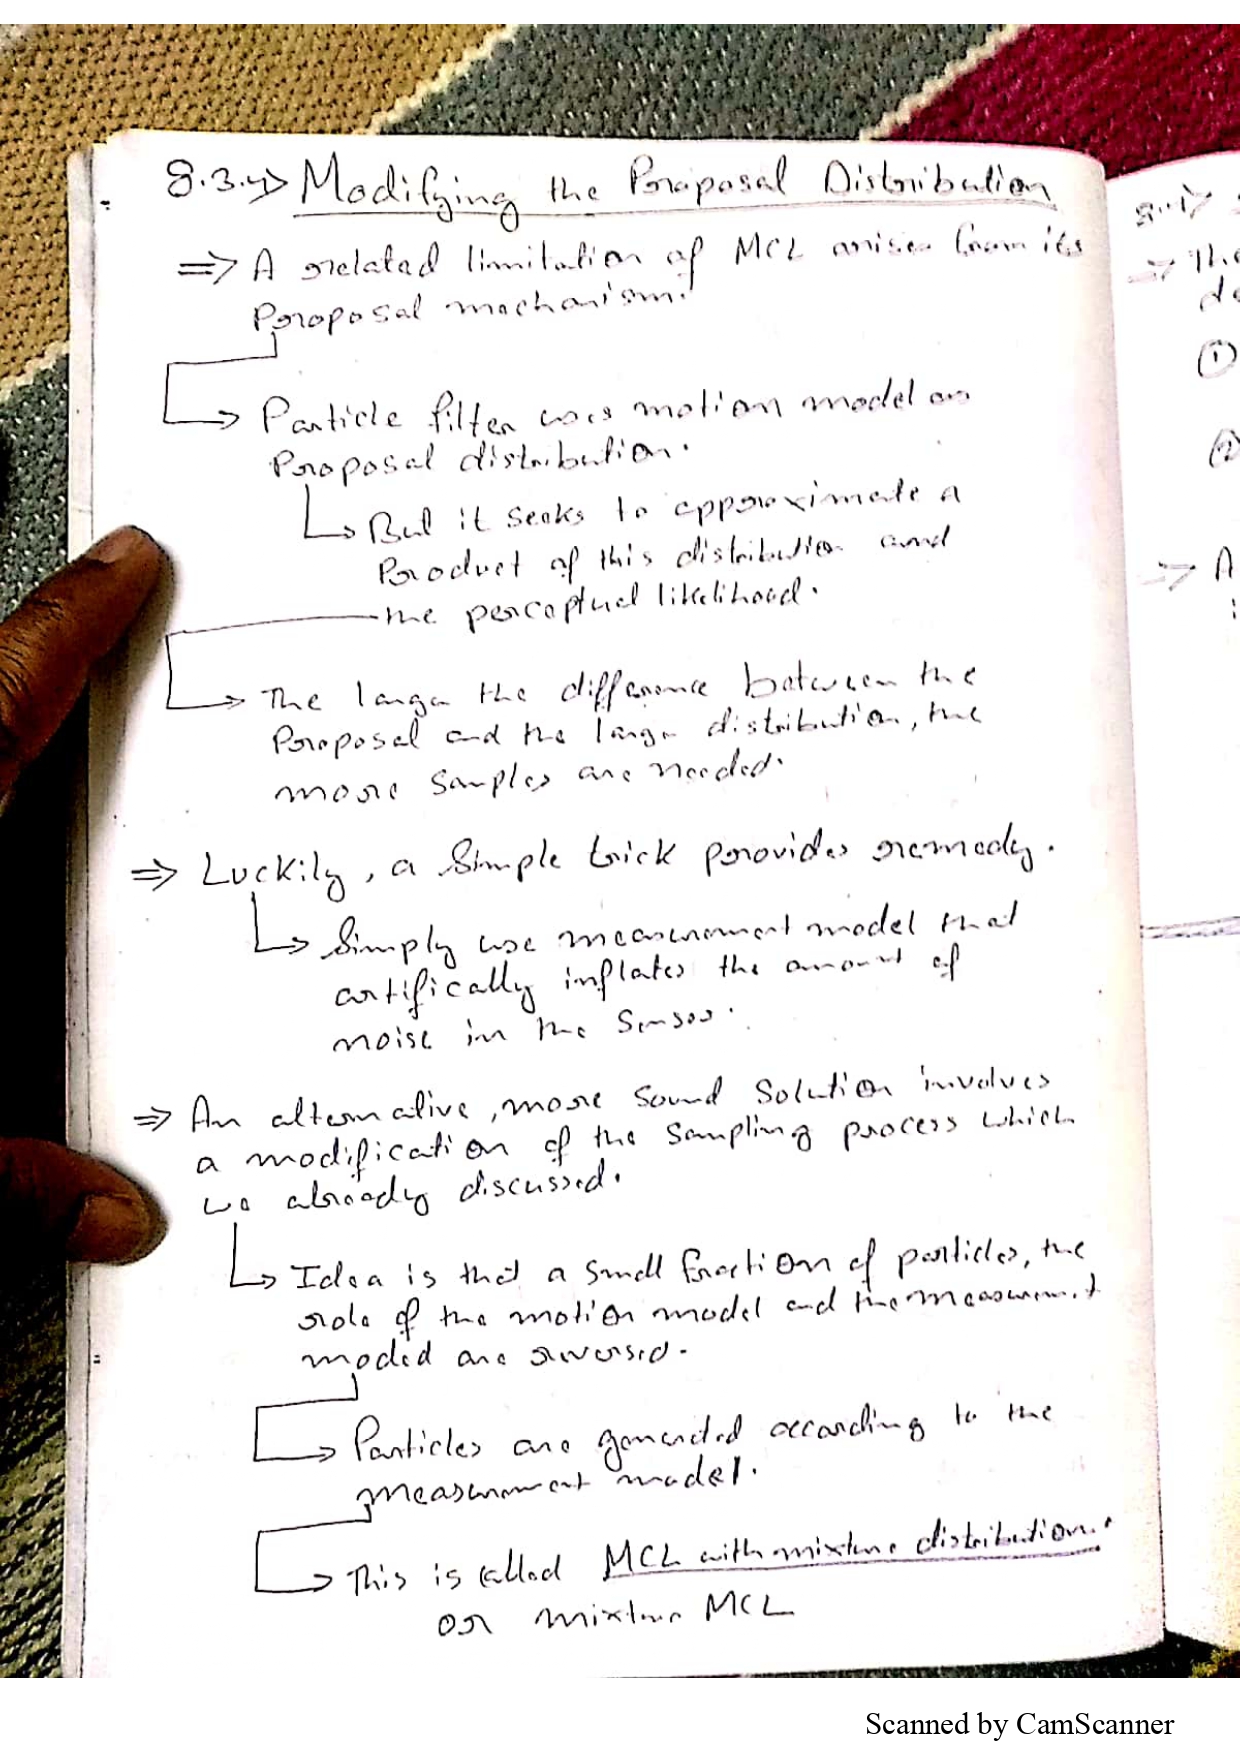 8.3.4> Modifying the Proposal Distribution
=> A related limitation of MCL arises from its
Proposal mechanism.
Particle filter uses motion model as
Proposal distribution.
But it seeks to approximate a
Product of this distribution and
the perceptual likelihood.
The larger the difference between the
Proposal and the large distribution, the
more samples are needed.
=> Luckily, a simple trick provides remedy.
Simply use measurement model that
artifically inflates the amount of
noise in the sensor.
=> An alternative, more sound solution involves
a modification of the sampling process which
we already discussed.
Idea is that a small fraction of particles, the
role of the motion model and the measurement
model are reversed.
Particles are generated according to the
measurement model.
This is called MCL with mixture distribution.
or mixture MCL
8.1>
=> The
de
①
②
=> A
i
Scanned by CamScanner